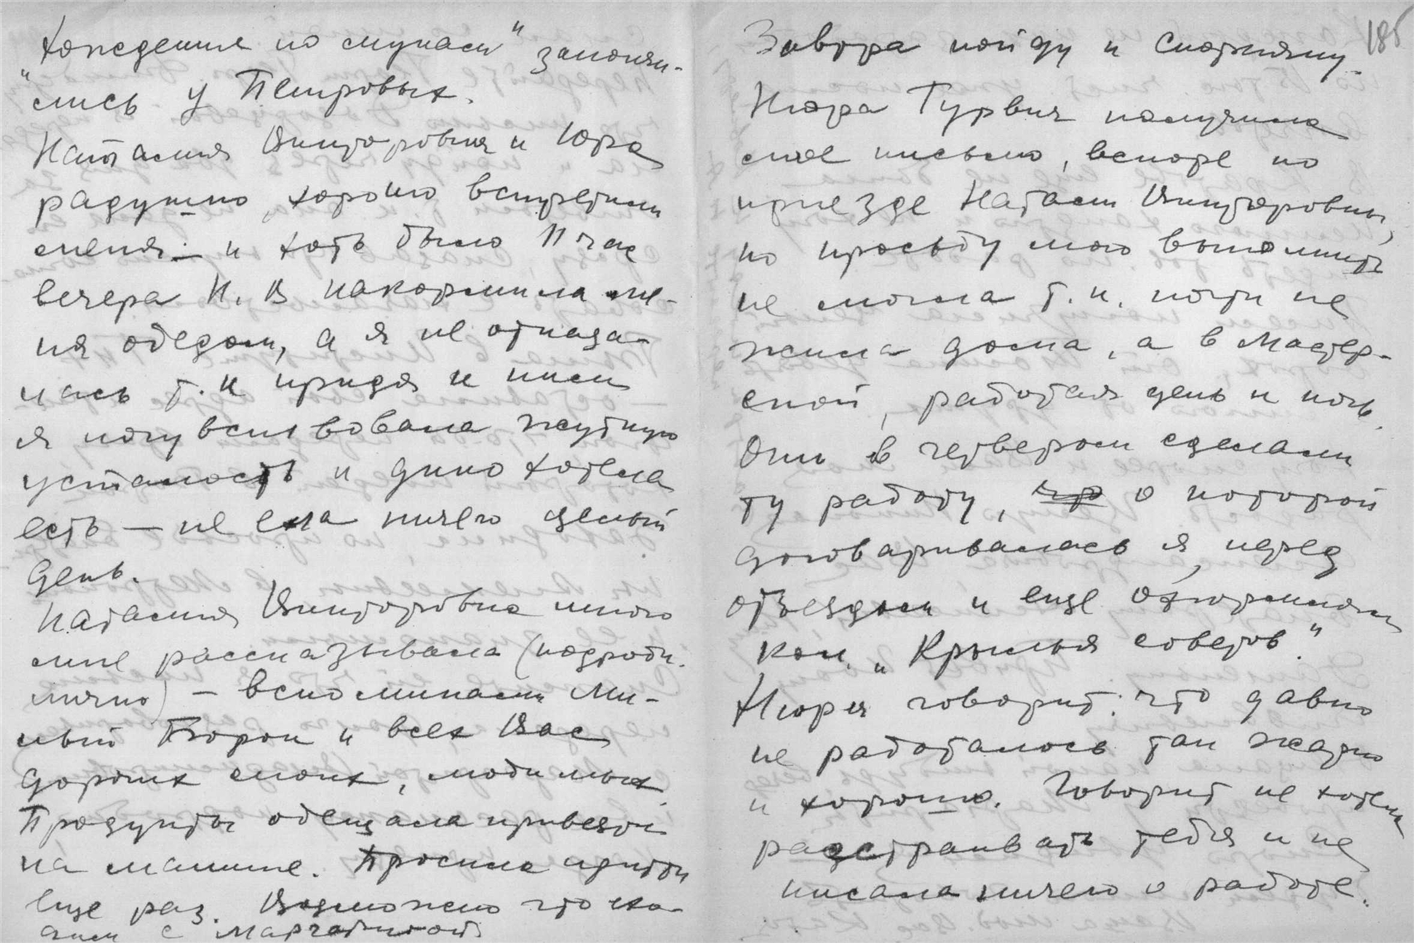 "Хождения по мукам" закончи-
лись у Петровых.
Наталия Викторовна и Юра
радушно, хорошо встретили
меня – и хоть было 11 час
вечера Н. В накормила ме-
ня обедом, а я не отказа-
лась т. к придя к ним
я почувствовала жуткую
усталость и дико хотела
есть — не ела ничего целый
день.
Наталия Викторовна много
мне рассказывала (подроб.
лично) – вспоминали Ми-
лый Торок и всех Вас
дорогих моих, любимых.
Продукты обещала привезти
на машине. Просила придти
еще раз. Возможно что
с Маргаритой
185
Завтра пойду к
Нюра Гурвич получила
мое письмо, вскоре по
приезде Наталии Викторовны,
но просьбу мою выполнить
не могла т. к. почти не
жила дома, а в мастер-
ской, работая день и ночь.
Они в четвером сделали
ту работу, о которой
договаривалась я, перед
отъездом и еще
Кол. „Крылья советов".
Нюра говорит: что давно
не работалось так жадно
и хорошо. Говорит не хотела
расстраивать тебя и не
писала ничего о работе.